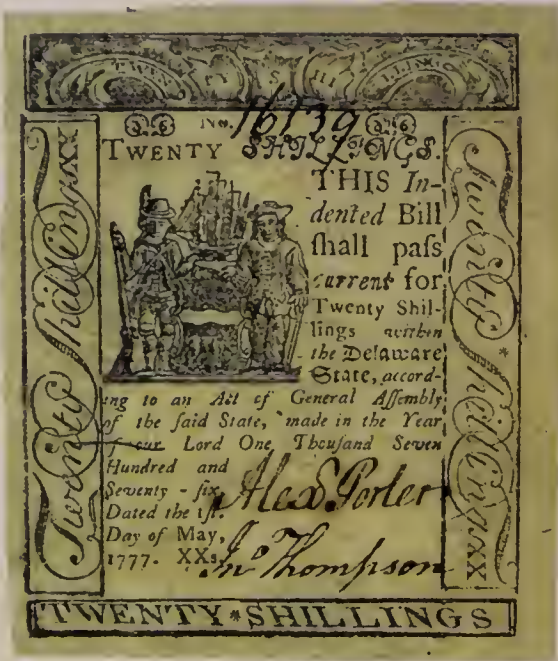 TWENTY SHILLINGS
No. 16139
TWENTY SHILLINGS.
THIS In-
dented Bill
ſhall paſs
current for
Twenty Shil-
lings within
the Delaware
State, accord-
ing to an Act of General Aſſembly
of the ſaid State, made in the Year
of our Lord One Thouſand Seven
Hundred and
Seventy-ſix.
Dated the 1ſt.
Day of May,
1777. XXs.
Alexr. Porter
Jno Thompson
Twenty Shillings XX
Twenty Shillings XX
TWENTY*SHILLINGS